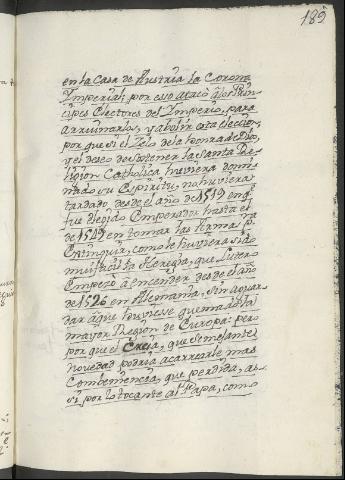 189
en la Casa de Austria la Corona
Imperial; por esso atacò à los Prin-
cipes Electores del Imperio, para
arruinarlos, y abolir esta eleccion,
por que si el Zelo de la honra de Dios,
y el deseo de sostener la Santa Re-
ligion Catholica huviera domi-
nado su Espiritu, no huviera
tardado desde el año de 1519 en q̃
fue elegido Emperador hasta el
de 1549 en tomar las Armas p.ª
Extinguir, como le huviera sido
mui facil la Heregia, que Lutero
Empezò à encender desde el año
de 1526 en Alemania, sin aguar-
dar à que tuviesse quemada la
mayor Region de Europa: pero
por que el Creia, que semejante
novedad podria acarrearle mas
Combeniencia, que perdida, as-
si por lo tocante al Papa, como